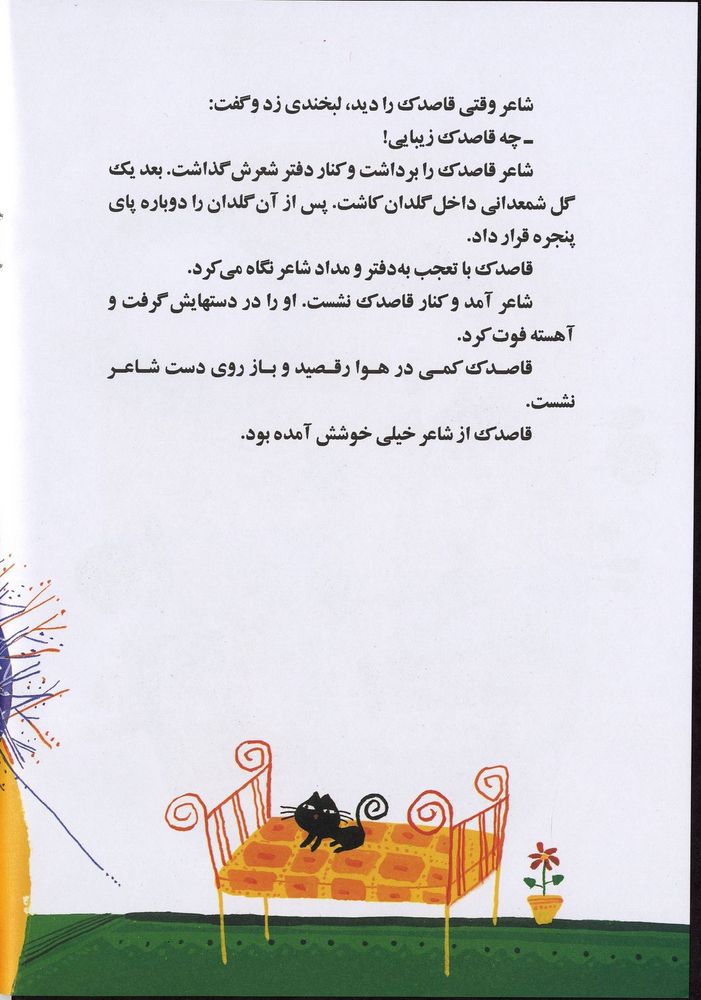 شاعر وقتی قاصدک را دید، لبخندی زد و گفت:
ـ چه قاصدک زیبایی!
شاعر قاصدک را برداشت و کنار دفتر شعرش گذاشت. بعد یک
گل شمعدانی داخل گلدان کاشت. پس از آن گلدان را دوباره پای
پنجره قرار داد.
قاصدک با تعجب به دفتر و مداد شاعر نگاه می‌کرد.
شاعر آمد و کنار قاصدک نشست. او را در دستهایش گرفت و
آهسته فوت کرد.
قاصدک کمی در هوا رقصید و باز روی دست شاعر
نشست.
قاصدک از شاعر خیلی خوشش آمده بود.